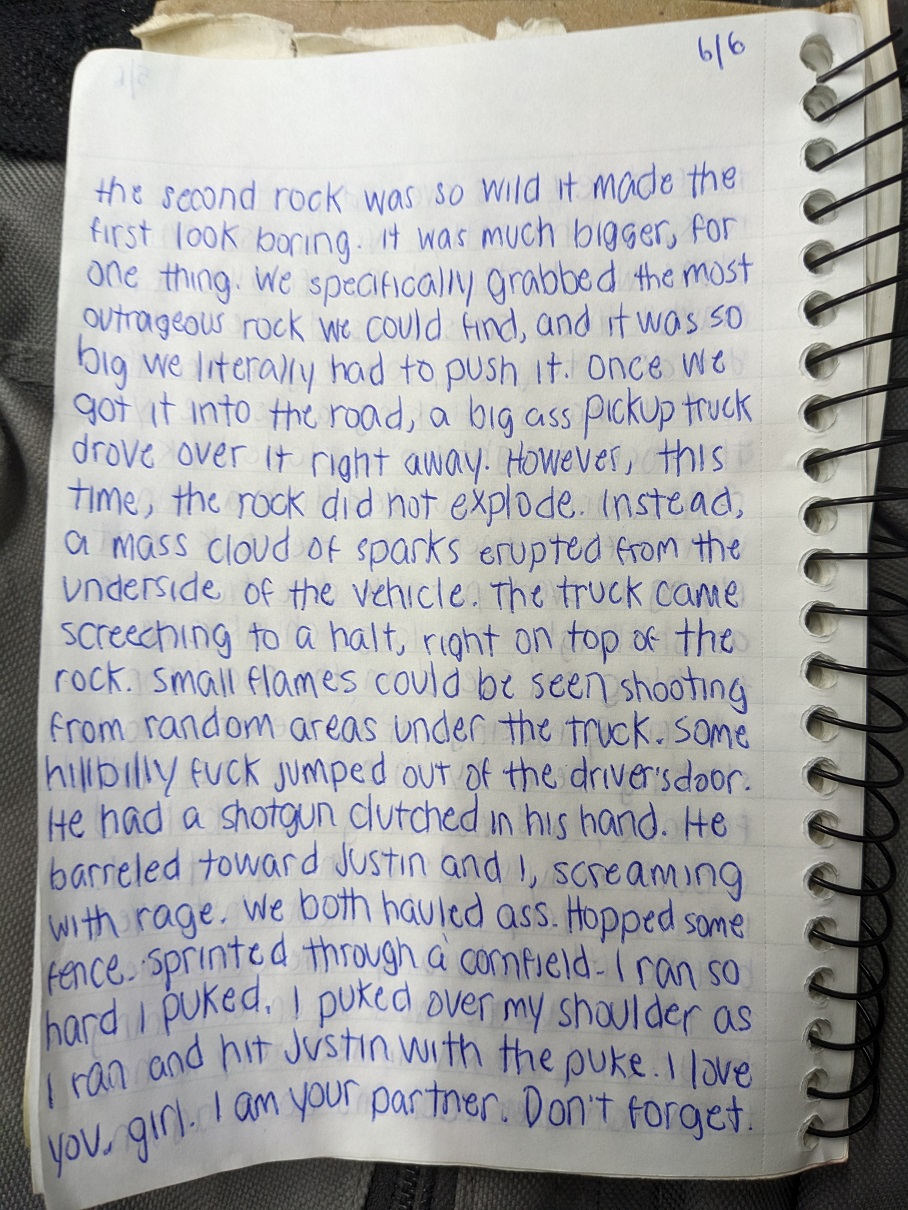 6/6
the second rock was so wild it made the
first look boring. it was much bigger, for
one thing. We specifically grabbed the most
outrageous rock we could find, and it was so
big we literally had to push it. Once we
got it into the road, a big ass pickup truck
drove over it right away. However, this
time, the rock did not explode. Instead,
a mass cloud of sparks erupted from the
underside of the vehicle. The truck came
screeching to a halt, right on top of the
rock. Small flames could be seen shooting
from random areas under the truck. Some
hillbilly fuck jumped out of the driver's door.
He had a shotgun clutched in his hand. He
barreled toward Justin and I, screaming
with rage. We both hauled ass. Hopped some
fence. Sprinted through a cornfield. I ran so
hard I puked. I puked over my shoulder as
I ran and hit Justin with the puke. I love
you, girl. I am your partner. Don't forget.